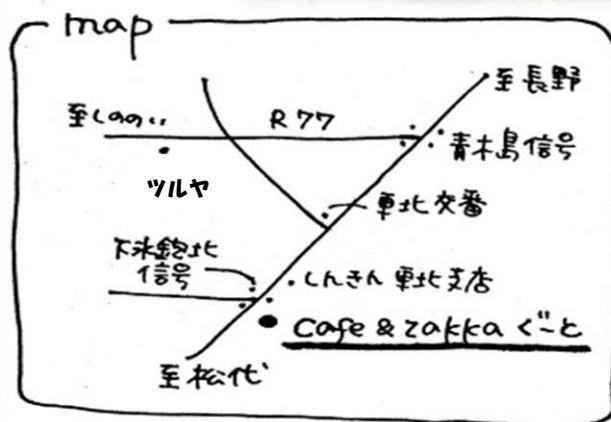 map
至長野
至しののい
R77
青木島信号
ツルヤ
更北交番
下氷鉋北
信号
しんきん更北支店
cafe & zakka ぐーと
至松代